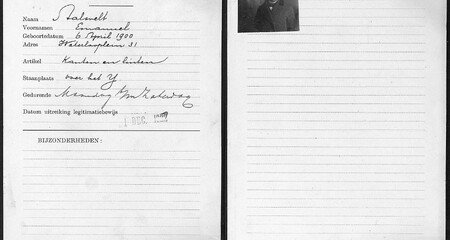 Naam Aalvelt
Voornamen Emanuel
Geboortedatum 6 April 1900
Adres Waterlooplein 31
Artikel Kanten en linten
Staanplaats over het Y
Gedurende Maandag t/m Zaterdag
Datum uitreiking legitimatiebewijs 1 DEC.
BIJZONDERHEDEN: